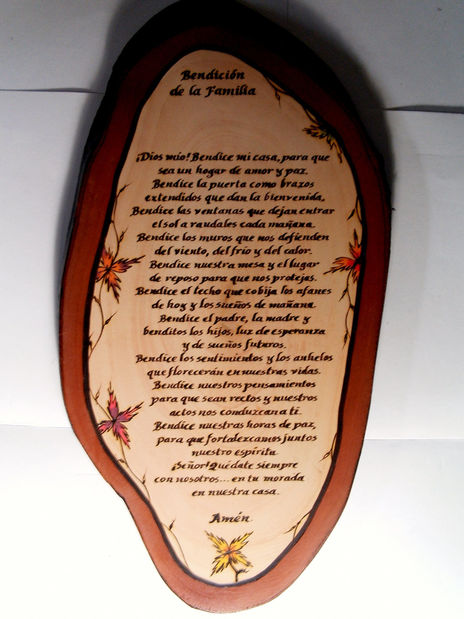 Bendición
de la Familia
¡Dios mío! Bendice mi casa, para que
sea un hogar de amor y paz.
Bendice la puerta como brazos
extendidos que dan la bienvenida,
Bendice las ventanas que dejan entrar
el sol a raudales cada mañana.
Bendice los muros que nos defienden
del viento, del frío y del calor.
Bendice nuestra mesa y el lugar
de reposo para que nos protejas.
Bendice el lecho que cobija los afanes
de hoy y los sueños de mañana.
Bendice el padre, la madre y
benditos los hijos, luz de esperanza
y de sueños futuros.
Bendice los sentimientos y los anhelos
que florecerán en nuestras vidas.
Bendice nuestros pensamientos
para que sean rectos y nuestros
actos nos conduzcan a ti.
Bendice nuestras horas de paz,
para que fortalezcamos juntos
nuestro espíritu.
¡Señor! Quédate siempre
con nosotros... en tu morada
en nuestra casa.
Amén